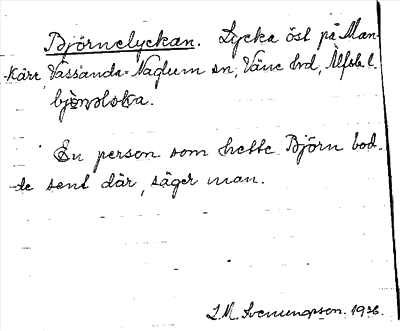 Björnelyckan. Lycka öst på Man-
kärr, Vassanda-Naglum sn, Väne hd, Älfsb. l.
En person som hette Björn bod-
de sent där, säger man.
S.M. Svenungsson. 1936.